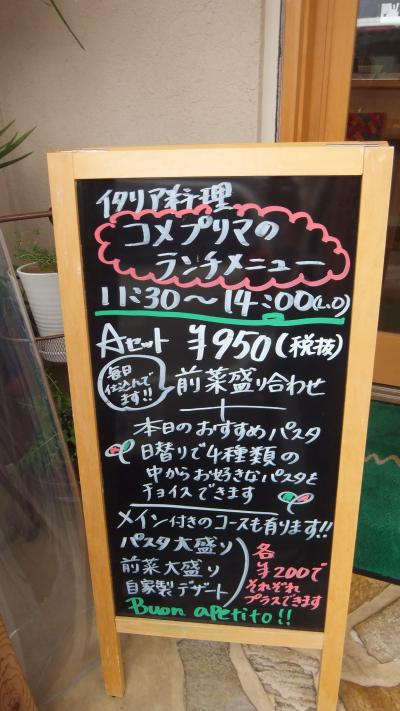 イタリア料理
コメプリマの
ランチメニュー
11:30～14:00(L.O)
Aセット ¥950(税抜)
毎日
仕込んで
ます!!
前菜盛り合わせ
＋
本日のおすすめパスタ
日替りで4種類の
中からお好きなパスタを
チョイスできます
メイン付きのコースも有ります!!
パスタ大盛り
前菜大盛り
自家製デザート
各
¥200で
それぞれ
プラスできます
Buon apetito!!